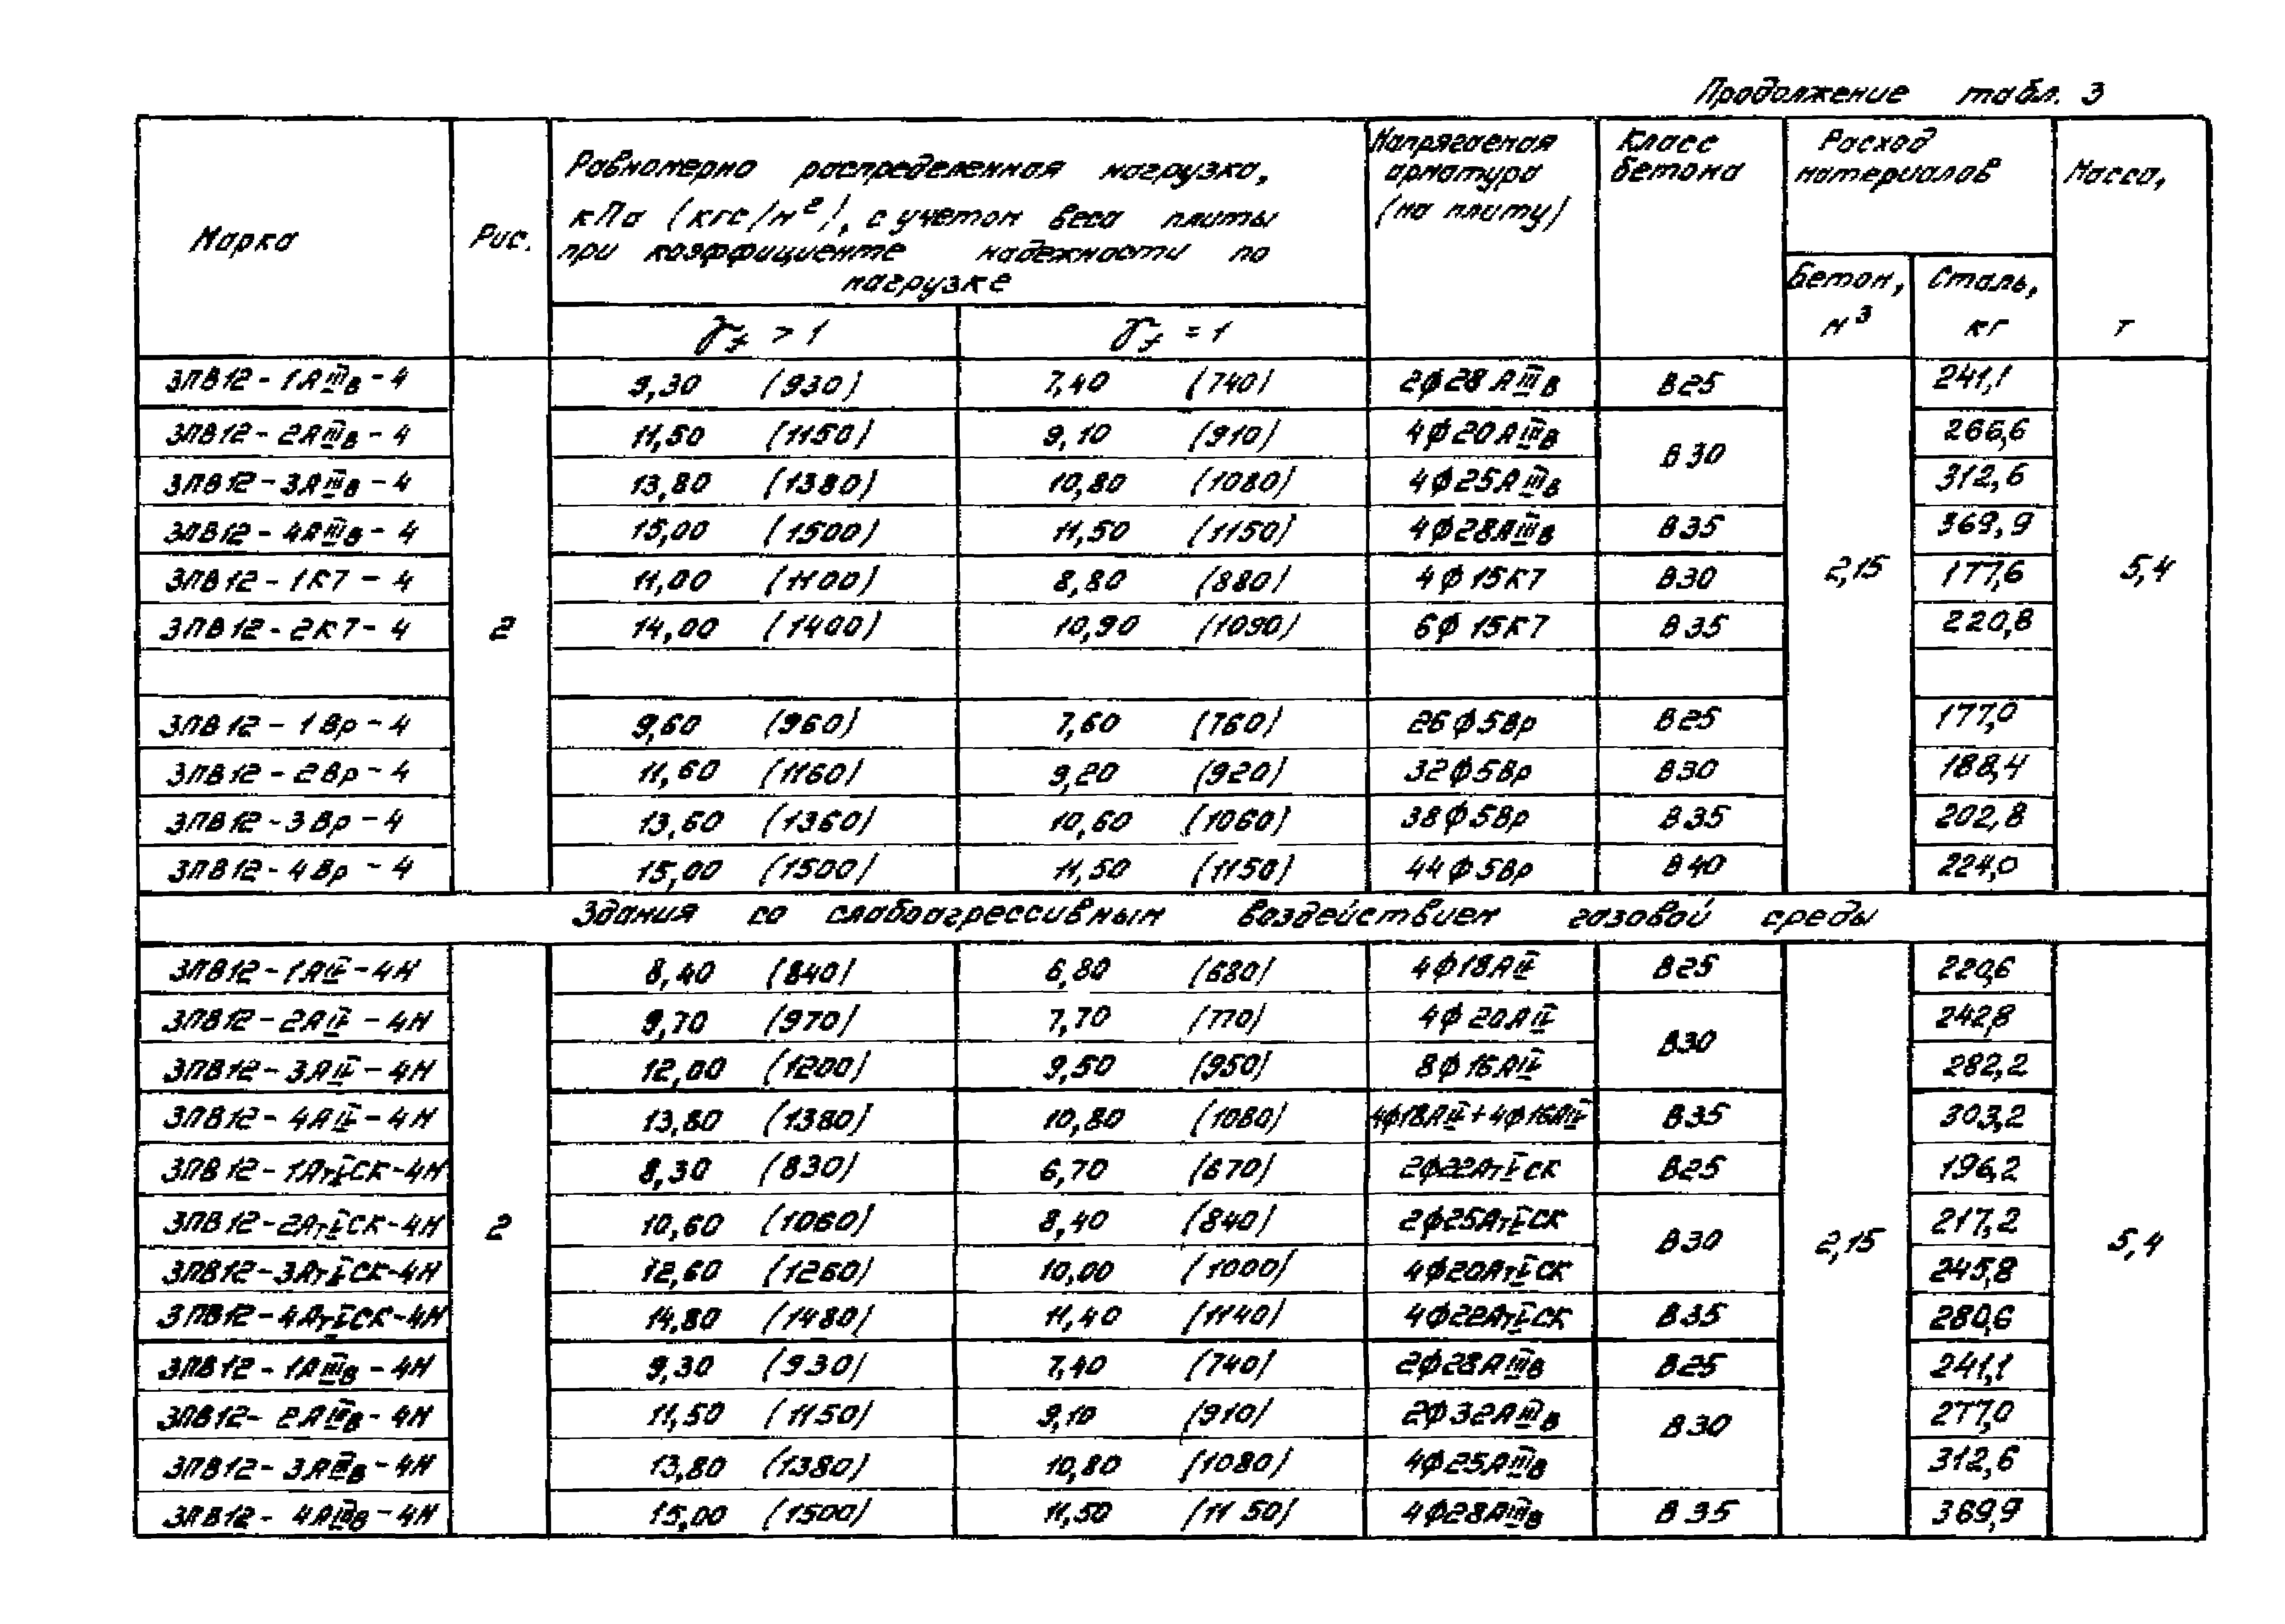 Продолжение табл. 3
Марка
Рис.
Равномерно распределенная нагрузка,
кПа (кгс/м²), с учетом веса плиты
при коэффициенте надежности по
нагрузке
γf > 1
γf = 1
Напрягаемая
арматура
(на плиту)
Класс
бетона
Расход
материалов
Бетон,
м³
Сталь,
кг
Масса,
т
3ПВ12-1АIIIв-4 9,30 (930) 7,40 (740) 2ф28АIIIв В25 241,1
3ПВ12-2АIIIв-4 11,50 (1150) 9,10 (910) 4ф20АIIIв В30 266,6
3ПВ12-3АIIIв-4 13,80 (1380) 10,80 (1080) 4ф25АIIIв 312,6
3ПВ12-4АIIIв-4 15,00 (1500) 11,50 (1150) 4ф28АIIIв В35 369,9
3ПВ12-1К7-4 11,00 (1100) 8,80 (880) 4ф15К7 В30 2,15 177,6 5,4
3ПВ12-2К7-4 2 14,00 (1400) 10,90 (1090) 6ф15К7 В35 220,8
3ПВ12-1Вр-4 9,60 (960) 7,60 (760) 26ф5Вр В25 177,0
3ПВ12-2Вр-4 11,60 (1160) 9,20 (920) 32ф5Вр В30 188,4
3ПВ12-3Вр-4 13,60 (1360) 10,60 (1060) 38ф5Вр В35 202,8
3ПВ12-4Вр-4 15,00 (1500) 11,50 (1150) 44ф5Вр В40 224,0
Здания со слабоагрессивным воздействием газовой среды
3ПВ12-1АIV-4Н 8,40 (840) 6,80 (680) 4ф18АIV В25 220,6
3ПВ12-2АIV-4Н 9,70 (970) 7,70 (770) 4ф20АIV В30 242,8
3ПВ12-3АIV-4Н 12,00 (1200) 9,50 (950) 8ф16АIV 282,2
3ПВ12-4АIV-4Н 13,80 (1380) 10,80 (1080) 4ф18АIV+4ф16АIV В35 303,2
3ПВ12-1АтVСК-4Н 8,30 (830) 6,70 (670) 2ф22АтVСК В25 196,2
3ПВ12-2АтVСК-4Н 2 10,60 (1060) 8,40 (840) 2ф25АтVСК В30 2,15 217,2 5,4
3ПВ12-3АтVСК-4Н 12,60 (1260) 10,00 (1000) 4ф20АтVСК 245,8
3ПВ12-4АтVСК-4Н 14,80 (1480) 11,40 (1140) 4ф22АтVСК В35 280,6
3ПВ12-1АIIIв-4Н 9,30 (930) 7,40 (740) 2ф28АIIIв В25 241,1
3ПВ12-2АIIIв-4Н 11,50 (1150) 9,10 (910) 2ф32АIIIв В30 277,0
3ПВ12-3АIIIв-4Н 13,80 (1380) 10,80 (1080) 4ф25АIIIв 312,6
3ПВ12-4АIIIв-4Н 15,00 (1500) 11,50 (1150) 4ф28АIIIв В35 369,9